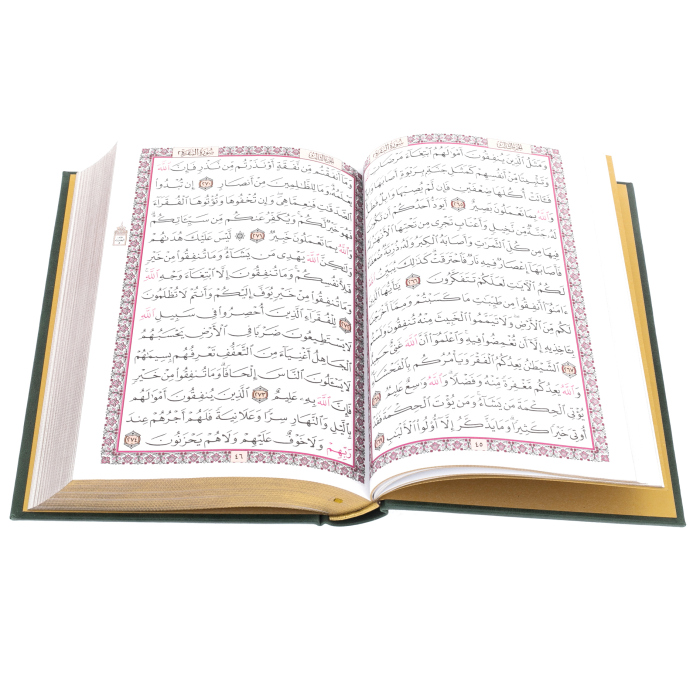 سُورَةُ البَقَرَةِ
وَمَثَلُ ٱلَّذِينَ يُنفِقُونَ أَمْوَٰلَهُمُ ٱبْتِغَآءَ مَرْضَاتِ
وَتَثْبِيتًا مِّنْ أَنفُسِهِمْ كَمَثَلِ جَنَّةٍۭ بِرَبْوَةٍ أَصَابَهَا
فَـَٔاتَتْ أُكُلَهَا ضِعْفَيْنِ فَإِن لَّمْ يُصِبْهَا وَابِلٌ
وَٱللَّهُ بِمَا تَعْمَلُونَ بَصِيرٌ ٢٦٥ أَيَوَدُّ أَحَدُكُمْ أَن تَكُونَ
جَنَّةٌ مِّن نَّخِيلٍ وَأَعْنَابٍ تَجْرِى مِن تَحْتِهَا ٱلْأَنْهَٰرُ
فِيهَا مِن كُلِّ ٱلثَّمَرَٰتِ وَأَصَابَهُ ٱلْكِبَرُ وَلَهُۥ ذُرِّيَّةٌ
فَأَصَابَهَآ إِعْصَارٌ فِيهِ نَارٌ فَٱحْتَرَقَتْ كَذَٰلِكَ يُبَيِّنُ
لَكُمُ ٱلْـَٔايَٰتِ لَعَلَّكُمْ تَتَفَكَّرُونَ ٢٦٦ يَٰٓأَيُّهَا
ءَامَنُوٓا۟ أَنفِقُوا۟ مِن طَيِّبَٰتِ مَا كَسَبْتُمْ وَمِمَّآ أَخْرَجْنَا
لَكُم مِّنَ ٱلْأَرْضِ وَلَا تَيَمَّمُوا۟ ٱلْخَبِيثَ مِنْهُ تُنفِقُونَ
بِـَٔاخِذِيهِ إِلَّآ أَن تُغْمِضُوا۟ فِيهِ وَٱعْلَمُوٓا۟ أَنَّ ٱللَّهَ غَنِىٌّ
٢٦٧ ٱلشَّيْطَٰنُ يَعِدُكُمُ ٱلْفَقْرَ وَيَأْمُرُكُم بِٱلْفَحْشَآءِ
وَٱللَّهُ يَعِدُكُم مَّغْفِرَةً مِّنْهُ وَفَضْلًا وَٱللَّهُ وَٰسِعٌ عَلِيمٌ
يُؤْتِى ٱلْحِكْمَةَ مَن يَشَآءُ وَمَن يُؤْتَ ٱلْحِكْمَةَ
أُوتِىَ خَيْرًا كَثِيرًا وَمَا يَذَّكَّرُ إِلَّآ أُو۟لُوا۟
٤٥
سُورَةُ البَقَرَةِ
وَمَآ أَنفَقْتُم مِّن نَّفَقَةٍ أَوْ نَذَرْتُم مِّن نَّذْرٍ فَإِنَّ ٱللَّهَ
يَعْلَمُهُۥ وَمَا لِلظَّٰلِمِينَ مِنْ أَنصَارٍ ٢٧٠ إِن تُبْدُوا۟
ٱلصَّدَقَٰتِ فَنِعِمَّا هِىَ وَإِن تُخْفُوهَا وَتُؤْتُوهَا ٱلْفُقَرَآءَ
فَهُوَ خَيْرٌ لَّكُمْ وَيُكَفِّرُ عَنكُم مِّن سَيِّـَٔاتِكُمْ
وَٱللَّهُ بِمَا تَعْمَلُونَ خَبِيرٌ ٢٧١ ۞ لَّيْسَ عَلَيْكَ هُدَىٰهُمْ
وَلَٰكِنَّ ٱللَّهَ يَهْدِى مَن يَشَآءُ وَمَا تُنفِقُوا۟ مِنْ خَيْرٍ
فَلِأَنفُسِكُمْ وَمَا تُنفِقُونَ إِلَّا ٱبْتِغَآءَ وَجْهِ ٱللَّهِ
وَمَا تُنفِقُوا۟ مِنْ خَيْرٍ يُوَفَّ إِلَيْكُمْ وَأَنتُمْ لَا تُظْلَمُونَ
٢٧٢ لِلْفُقَرَآءِ ٱلَّذِينَ أُحْصِرُوا۟ فِى سَبِيلِ ٱللَّهِ
لَا يَسْتَطِيعُونَ ضَرْبًا فِى ٱلْأَرْضِ يَحْسَبُهُمُ
ٱلْجَاهِلُ أَغْنِيَآءَ مِنَ ٱلتَّعَفُّفِ تَعْرِفُهُم بِسِيمَٰهُمْ
لَا يَسْـَٔلُونَ ٱلنَّاسَ إِلْحَافًا وَمَا تُنفِقُوا۟ مِنْ خَيْرٍ
فَإِنَّ ٱللَّهَ بِهِۦ عَلِيمٌ ٢٧٣ ٱلَّذِينَ يُنفِقُونَ أَمْوَٰلَهُم
بِٱلَّيْلِ وَٱلنَّهَارِ سِرًّا وَعَلَانِيَةً فَلَهُمْ أَجْرُهُمْ عِندَ
رَبِّهِمْ وَلَا خَوْفٌ عَلَيْهِمْ وَلَا هُمْ يَحْزَنُونَ ٢٧٤
٤٦